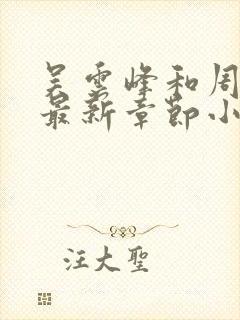 吴雲峰和周
最新章節小
汪大聖